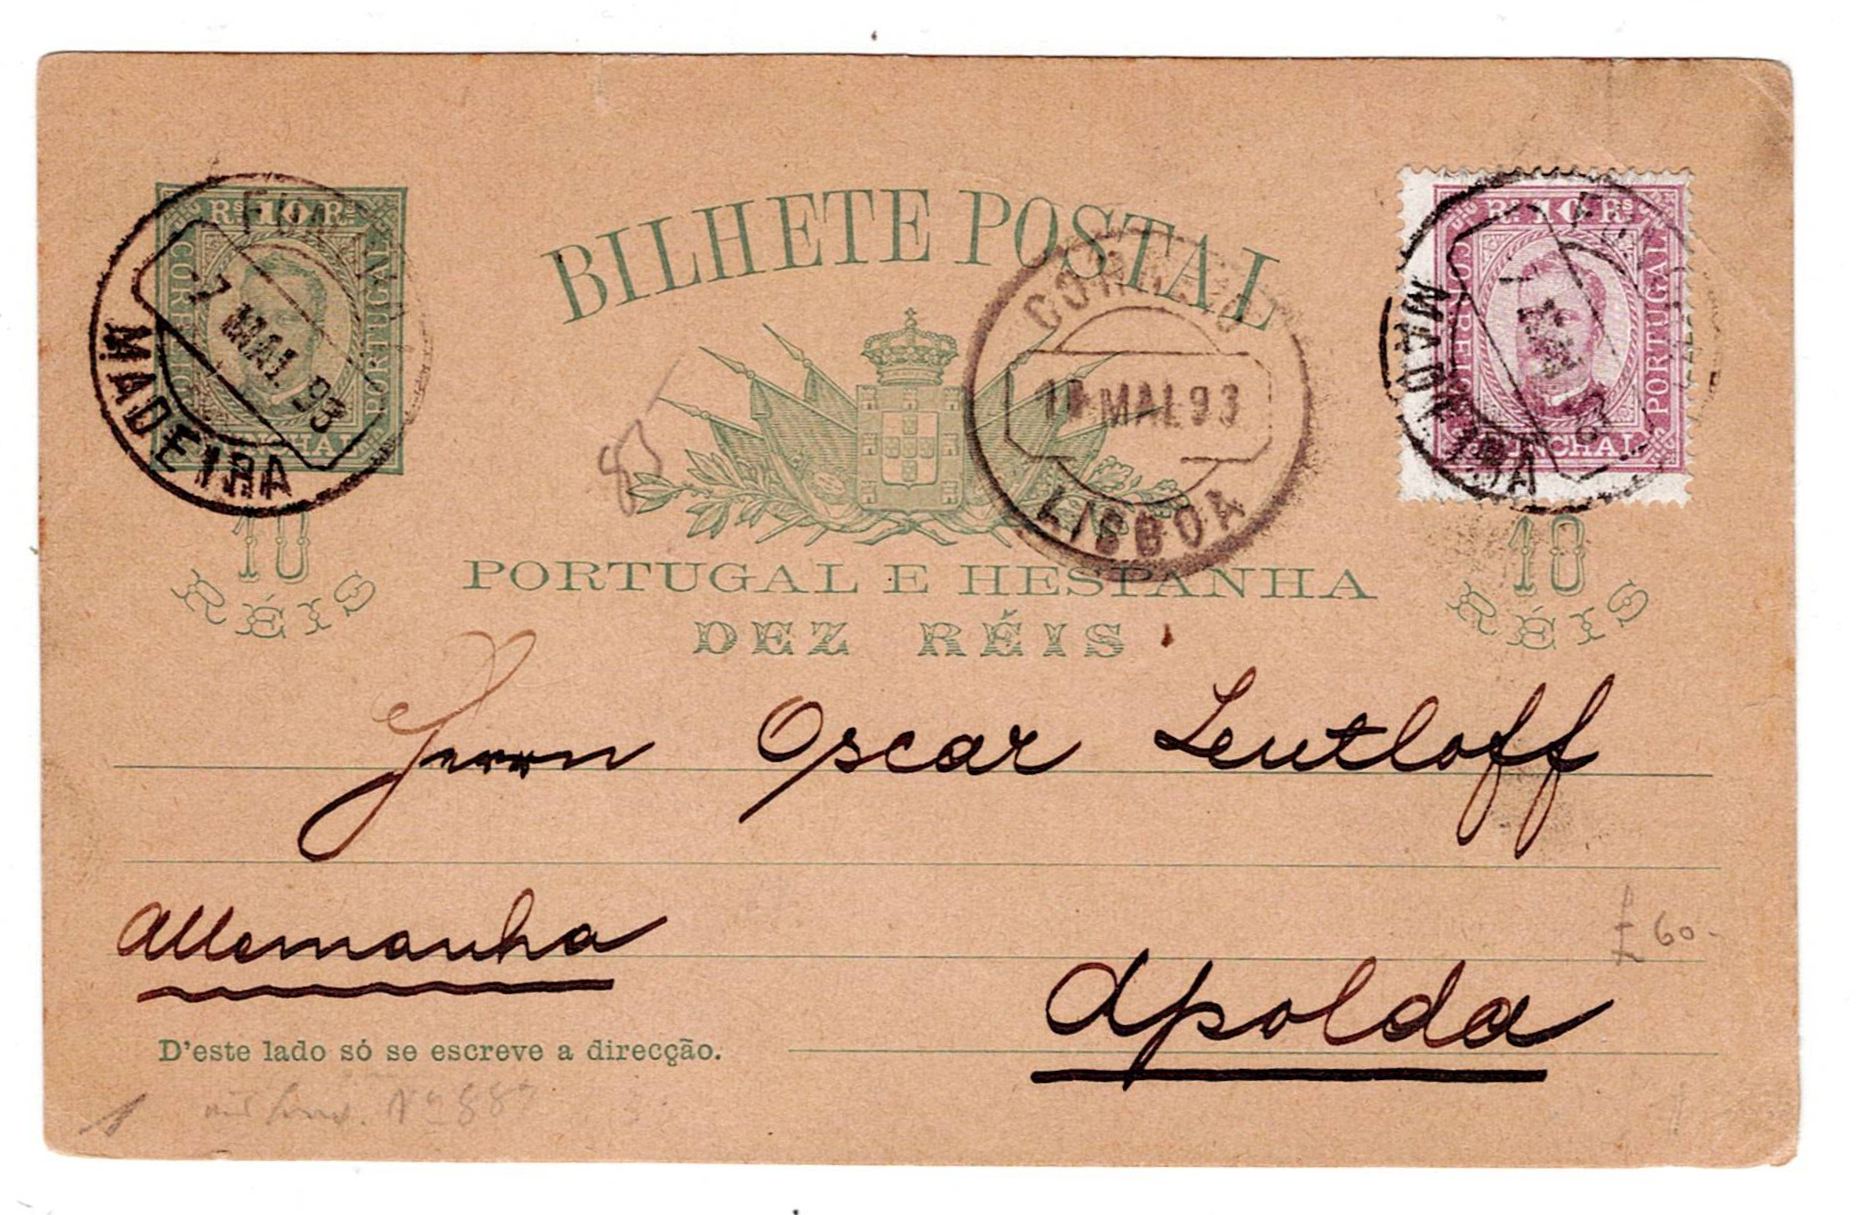 Rs 10 Rs
CORREIO
PORTUGAL
FUNCHAL
FUNCHAL
7 MAI. 93
MADEIRA
BILHETE POSTAL
CORREIO
MAI. 93
LISBOA
Rs 10 Rs
CORREIO
PORTUGAL
FUNCHAL
FUNCHAL
7 MAI 93
MADEIRA
85
10
RÉIS
PORTUGAL E HESPANHA
DEZ RÉIS
10
RÉIS
Herrn Oscar Leutloff
Allemanha
£ 60.-
Apolda
D'este lado só se escreve a direcção.